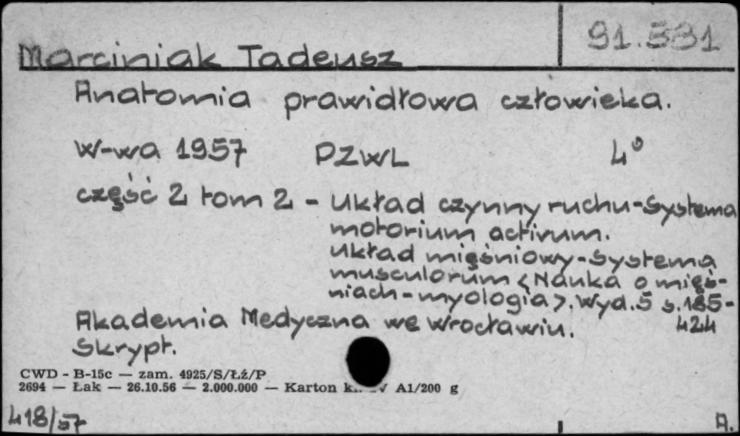 Marciniak Tadeusz 91.531
Anatomia prawidłowa człowieka.
W-wa 1957 PZWL 4°
część 2 tom 2 - Układ czynny ruchu-Systema
motorium activum.
Układ mięśniowy-Systema
musculorum <Nauka o mięś-
niach-myologia>. Wyd.5 s.185-
424
Akademia Medyczna we Wrocławiu.
Skrypt.
CWD - B-15c — zam. 4925/S/Łż/P
2694 — Łak — 26.10.56 — 2.000.000 — Karton A1/200 g
418/57 A.